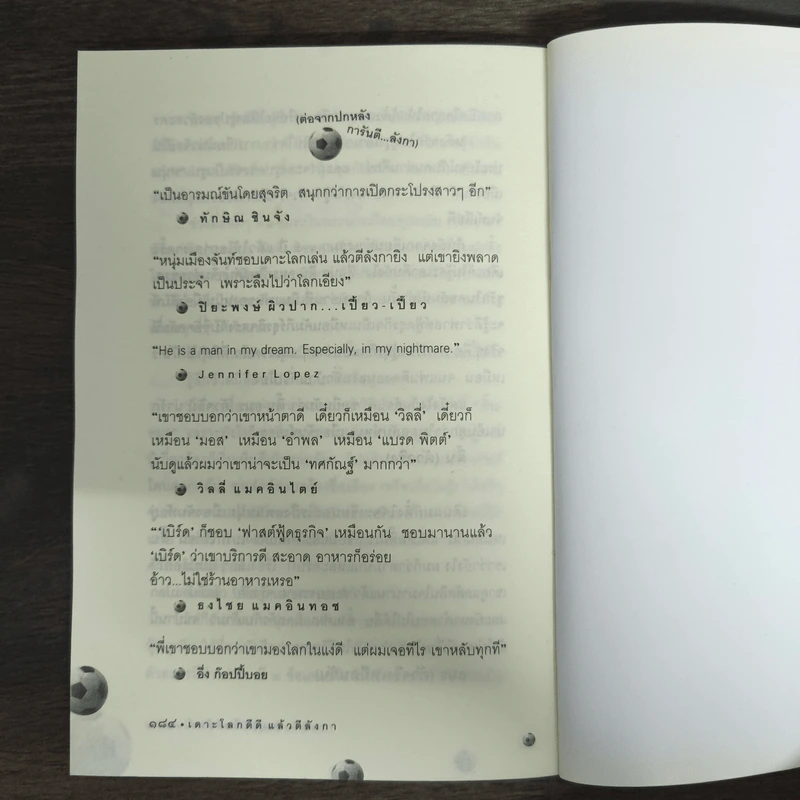 (ต่อจากปกหลัง
การันตี...ลังกา)
“เป็นอารมณ์ขันโดยสุจริต สนุกกว่าการเปิดกระโปรงสาวๆ อีก”
ทักษิณ ชินจัง
“หนุ่มเมืองจันท์ชอบเดาะโลกเล่น แล้วตีลังกายิง แต่เขายิงพลาด
เป็นประจำ เพราะลืมไปว่าโลกเอียง”
ปิยะพงษ์ ผิวปาก...เปี้ยว-เปี้ยว
“He is a man in my dream. Especially, in my nightmare.”
Jennifer Lopez
“เขาชอบบอกว่าเขาหน้าตาดี เดี๋ยวก็เหมือน ‘วิลลี่’ เดี๋ยวก็
เหมือน ‘มอส’ เหมือน ‘อำพล’ เหมือน ‘แบรด พิตต์’
นับดูแล้วผมว่าเขาน่าจะเป็น ‘ทศกัณฐ์’ มากกว่า”
วิลลี่ แมคอินไตย์
“‘เบิร์ด’ ก็ชอบ ‘ฟาสต์ฟู้ดธุรกิจ’ เหมือนกัน ชอบมานานแล้ว
‘เบิร์ด’ ว่าเขาบริการดี สะอาด อาหารก็อร่อย
อ้าว...ไม่ใช่ร้านอาหารเหรอ”
ธงไชย แมคอินทอช
“พี่เขาชอบบอกว่าเขามองโลกในแง่ดี แต่ผมเจอทีไร เขาหลับทุกที”
อึ่ง ก๊อปปี้บอย
๑๘๔ • เดาะโลกดีดี แล้วตีลังกา